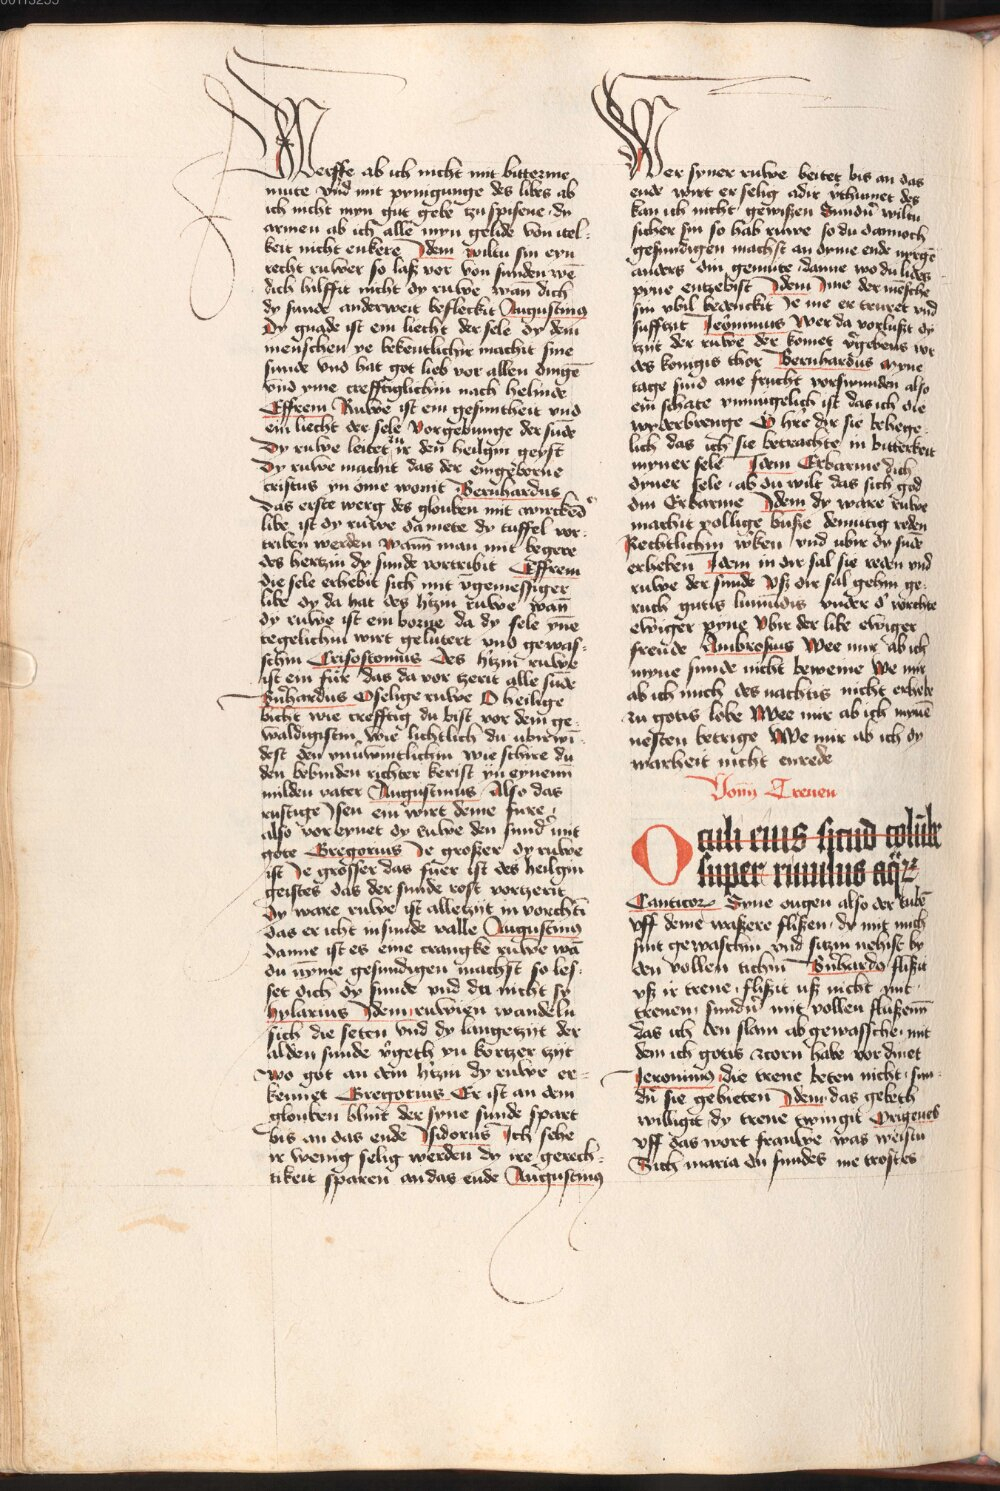 Werffe ab ich nicht mit bitterme
mute vnd mit pynigunge des libes ab
ich nicht myn gut gebe tzu spisene dy
armen ab ich alle myn gelide von itel-
keit nicht enkere Idem wiltu sin eyn
recht ruwer so laß vor von sunden we
dich hilffit nicht dy ruwe wan dich
dy sunde anderweit befleckit Augustinus
Dy gnade ist ein liecht der sele dy dem
menschen ye bekentlichir machit sine
sunde vnd hat got lieb vor allen dinge
vnd yme crefftiglichin nach helinde
Effrem Ruwe ist ein gesuntheit vnd
ein liecht der sele Vorgebunge der sude
Dy ruwe leitet zu ir den heilgin geyst
Dy ruwe machit das der eingeberne
cristus yn ome wonit Bernhardus
Das erste werg des glouben mit wircked
libe ist dy ruwe da mete dy tuffel vor-
triben werden wann man mit begere
des hertzin dy sunde vortribit Effrem
Die sele erhebit sich mit vgemessiger
libe dy da hat des htzin ruwe wan
dy ruwe ist ein borne da dy sele yne
tegelichin wirt gelutert vnd gewas-
schin Crisostomus Des htzin ruwe
ist ein fur das da vor tzerit alle sude
Bnhardus O selige ruwe O heilige
bicht wie crefftig du bist vor dem ge-
waldigistin wie lichtlich du ubirwi-
dest den vnuwintlichin wie schire du
den bebinden richter kerist yn eynenn
milden vater Augustinus Also das
rustige ysen ein wirt deme fure
also voreynet dy ruwe den sund mit
gote Gregorius Ie großer dy ruwe
ist Ie grosser das fuer ist des heilgin
geistes das der sunde rost vortzerit
dy ware ruwe ist alletzijt in vorchti
das er icht in sunde valle Augustinus
Danne ist es eine crangke ruwe wa
du nyme gesundigen machst so les-
set dich dy sunde vnd da nicht sy
hylarius Idem ruwien wandeln
sich die seten vnd dy langetzijt der
alden sunde vgeth yn kortzer tzijt
wo got an dem htzin dy ruwe er-
kennet Gregorius Er ist an dem
glouben blint der syne sunde spart
bis an das ende Isidorus Ich sehe
ir wenig selig werden dy ire gerech-
tikeit sparen an das ende Augustinus
Wer syner ruwe beitet bis an das
ende wirt er selig adir vthumet des
kan ich nicht gewißen wiltu
sicher sin so hab ruwe so du dannoch
gesundigen machst an dyme ende nyrge
anders din gemute danne wo du lides
pyne entzebist Idem Ime der mensche
sin vbil bedenckit Ie me er truret vnd
sufftzit Ieronimus Wer da vorlusit dy
tzijt der ruwe der komet vgebens vor
des konigis thor Bernhardus Myne
tage sind ane frucht vorswunden also
ein schate vnmugelich ist das ich die
wyderbrenge O hre dir sie behege-
lich das ich sie betrachte in bitterkeit
myner sele Idem Erbarme dich
dyner sele ab du wilt das sich god
din Erbarme Idem dy ware ruwe
machit vollige buße demutig reden
Rechtlichin wken vnd ubir dy sude
erheben Idem in dir sal sie reden vnd
ruwe der sunde Vsz dir sal gehin ge-
ruch gutis vnder d vorchte
ewiger pyne Vbir der libe ewiger
freude Ambrosius Wee mir ab ich
myne sunde nicht beweine We mir
ab ich mich des nachtis nicht erhebe
zu gotis lobe Wee mir ab ich myne
nesten betrige We mir ab ich dy
warheit nicht enrede
Vonn Trenen
Oculi eius sicud colube
super riuulus aqrz
Canticorz Syne ougen also der tube
vff deme waßere flißen dy mit mich
sint gewaschin vnd sitzin nehist by
den vollen tichin Bnhardo flißit
vsz ir trene flißit usz nicht mit
trenen sundn mit vollen flußenn
das ich den slam abgewassche mit
dem ich gotis zcorn habe vordinet
Ieronimus die trene beten nicht sun-
dn sie gebieten Idem das gebeth
willigit dy trene twingit Origenes
vff das wort frauwe was weistu
Sich maria du sundes me trostes